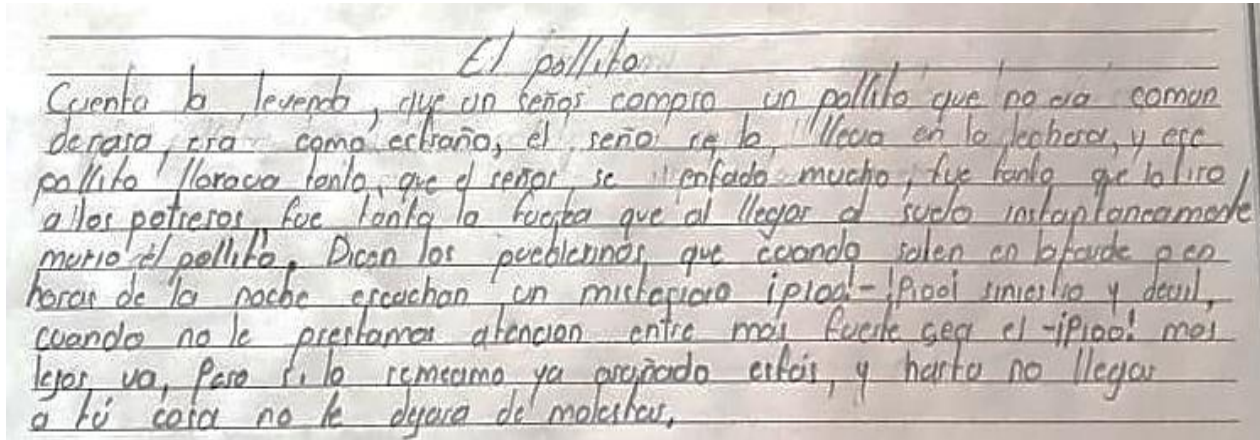 El pollito
Cuenta la leyenda, que un señor compro un pollito que no era comun
de raza, era como estraño, el seño se lo lleva en la lechera, y ese
pollito llorava tanto, que el señor se enfado mucho, fue tanto que lo tiro
a los potreros, fue tanta la fuerza que al llegar al suelo instantaneamente
murio el pollito. Dicen los pueblerinos, que cuando salen en la tarde o en
horas de la noche escuchan un misterioso ¡pioo!-¡Pioo! siniestro y devil,
cuando no le prestamos atencion entre mas fuerte sea el -¡Pioo! mas
lejos va, Pero si lo remeamo ya arañado estais, y hasta no llegar
a tú casa no te dejara de molestar,